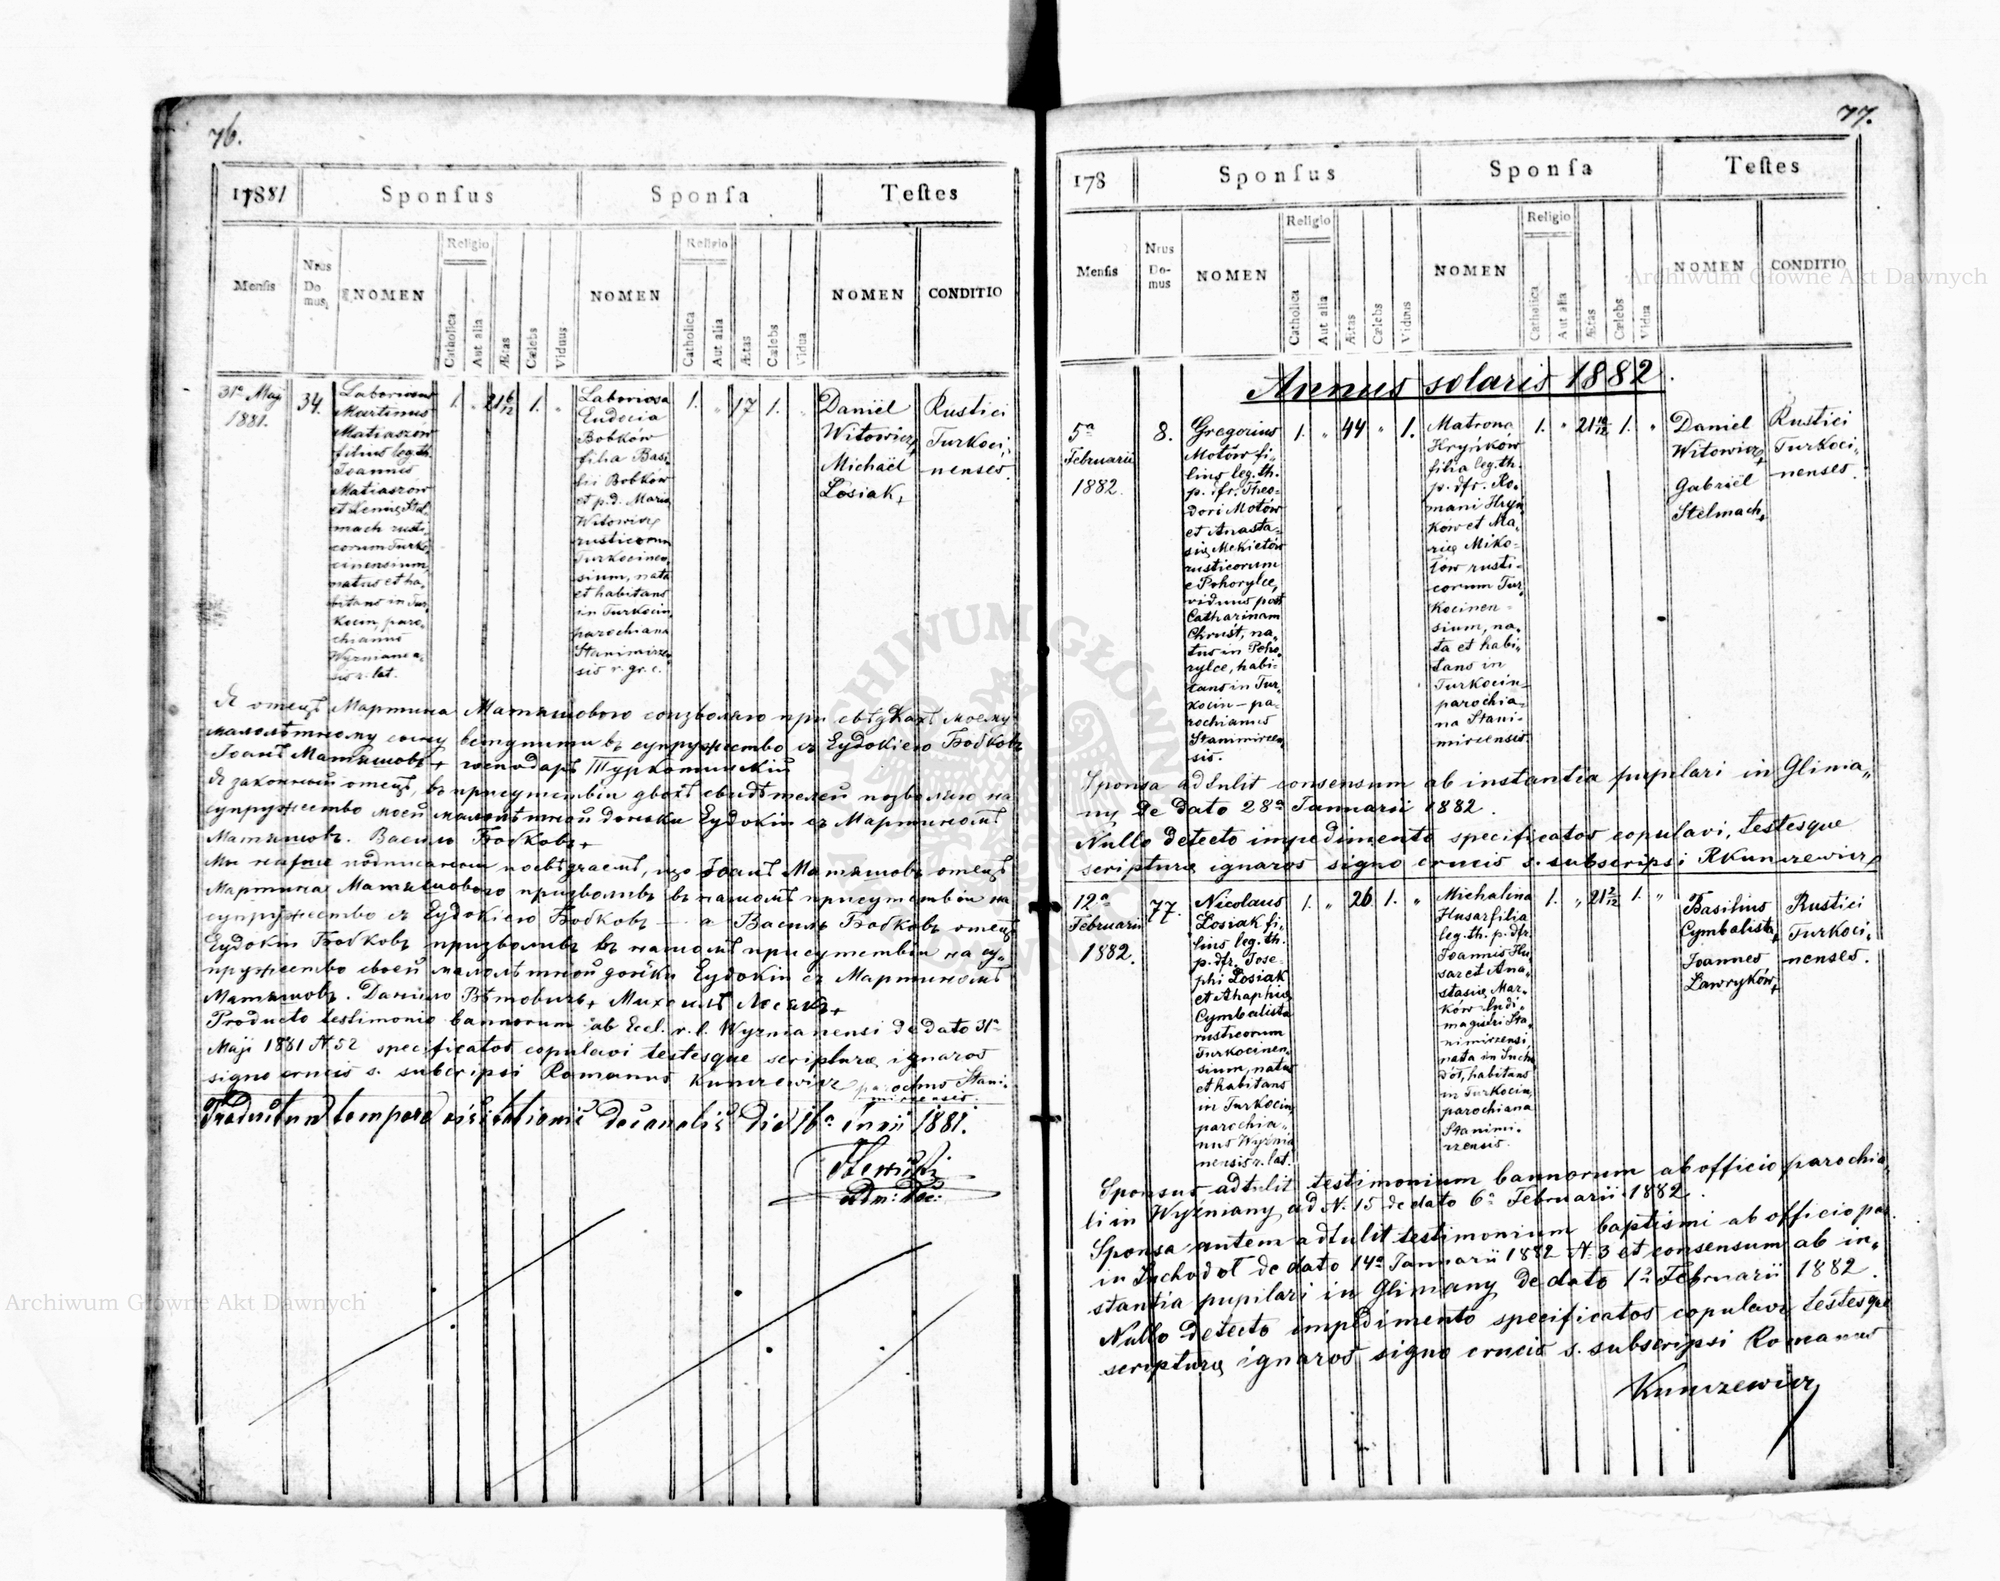 76.
17881 Sponſus Sponſa Teſtes
Menſis Nrus Do mus, NOMEN Religio Catholica Aut alia Ætas Cœlebs Viduus NOMEN Religio Catholica Aut alia Ætas Cœlebs Vidua NOMEN CONDITIO
31a Maji
1881.
34.
Laboriosus
Martinus
Matiaszów
filius leg. th.
Joannis
Matiaszow
et Stel,
mach rusti,
corum Turko,
cinensium
natus et ha,
bitans in Tur,
kocin, paro,
chianus
Wyznianen,
sis r. lat.
1.
"
21 6/12
1.
"
Laboriosa
Eudocia
Bobków
filia Basi,
lii Bobków
et p.d. Maria
Witowicz
rusticorum
Turkocinen,
sium, nata
et habitans
in Turkocin,
parochiana
Stanimirzen,
sis r. gr. c.
1.
"
17
1.
"
Daniël
Witowicz+
Michaël
Łosiak+
Rustici
Turkoci,
nenses.
Я отецъ Мартина Матяшового соизволяю при свѣдкахъ моему
малолѣтному сыну вступити въ супружество съ Еудокіею Бобковъ
Іоанъ Матяшовъ+ господаръ Туркотинскій
Я законный отецъ, въ присутствіи двохъ свидѣтелей позволяю на
супружество моей малолѣтной доньки Еудокіи съ Мартиномъ
Матяшовъ. Василь Бобковъ+
Мы нажше подписаніи посвѣдчаемъ, що Іоанъ Матяшовъ отецъ
Мартина Матяшового призволивъ въ нашомъ присутствіи на
супружество съ Еудокіею Бобковъ — а Василь Бобковъ отецъ
Еудокіи Бобковъ призволивъ въ нашомъ присутствіи на су,
пружество своей малолѣтной дочки Еудокіи съ Мартиномъ
Матяшовъ. Данило Вѣтовичъ+ Михаилъ Лосякъ+
Producto testimonio bannorum ab Eccl. r. l. Wyznianensi de dato 31a
Maji 1881 N 52 specificatos copulavi testesque scripturæ ignaros
signo crucis s. subscripsi Romanus Kunczewicz parochus Stani,
mirzensis.
Productum tempore visitationis decanalis die 16a Junii 1881.
Adm: Dec:
77.
178 Sponſus Sponſa Teſtes
Menſis Nrus Do- mus NOMEN Religio Catholica Aut alia Ætas Cœlebs Viduus NOMEN Religio Catholica Aut alia Ætas Cœlebs Vidua NOMEN CONDITIO
Annus solaris 1882.
5a
Februarii
1882.
8.
Gregorius
Motów fi,
lius leg. th.
p. dfr. Theo,
dori Motów
et Anasta,
siæ Mekietów
rusticorum
e Pohorylce,
viduus post
Catharinam
Chrust, na,
tus in Poho,
rylce, habi,
tans in Tur,
kocin – pa,
rochianus
Stanimirzen,
sis.
1.
"
44
"
1.
Matrona
Hryńków
filia leg. th.
p. dfr. Ro,
mani Hryń,
ków et Ma,
riæ Miko,
łów rusti,
corum Tur,
kocinen,
sium, na,
ta et habi,
tans in
Turkocin,
parochia,
na Stani,
mirzensis
1.
"
21 10/12
1.
"
Daniel
Witowicz+
Gabriël
Stelmach+
Rustici
Turkoci,
nenses.
Sponsa adtulit consensum ab instantia pupilari in Glinia,
ny de dato 28a Januarii 1882.
Nullo detecto impedimento specificatos copulavi, testesque
scripturæ ignaros signo crucis s. subscripsi RKunczewicz
12a
Februarii
1882.
77.
Nicolaus
Łosiak fi,
lius leg. th.
p. dfr. Jose,
phi Łosiak
et Ahaphiæ
Cymbalista
rusticorum
Turkocinen,
sium, natus
et habitans
in Turkocin,
parochia,
nus Wyznia
nensis r. lat.
1.
"
26
1.
"
Michalina
Husar filia
leg. th. p. dfr.
Joannis Hu,
sar et Ana,
stasiæ Mar,
ków ludi,
magistri Sta,
nimirzensi,
nata in Sucho
dół, habitans
in Turkocin,
parochiana
Stanimi,
rzensis.
1.
"
21 2/12
1.
"
Basilius
Cymbalista+
Joannes
Ławryków+
Rustici
Turkoci,
nenses.
Sponsus adtulit testimonium bannorum ab officio parochia,
li in Wyżniany ad N. 15 de dato 6a Februarii 1882.
Sponsa autem adtulit testimonium baptismi ab officio par.
in Suchodół de dato 14a Januarii 1882 N. 3 et consensum ab in,
stantia pupilari in Gliniany de dato 1a Februarii 1882.
Nullo detecto impedimento specificatos copulavi testesque
scripturæ ignaros signo crucis s. subscripsi Romanus
Kunczewicz
Archiwum Główne Akt Dawnych
Archiwum Główne Akt Dawnych
ARCHIWUM GŁÓWNE